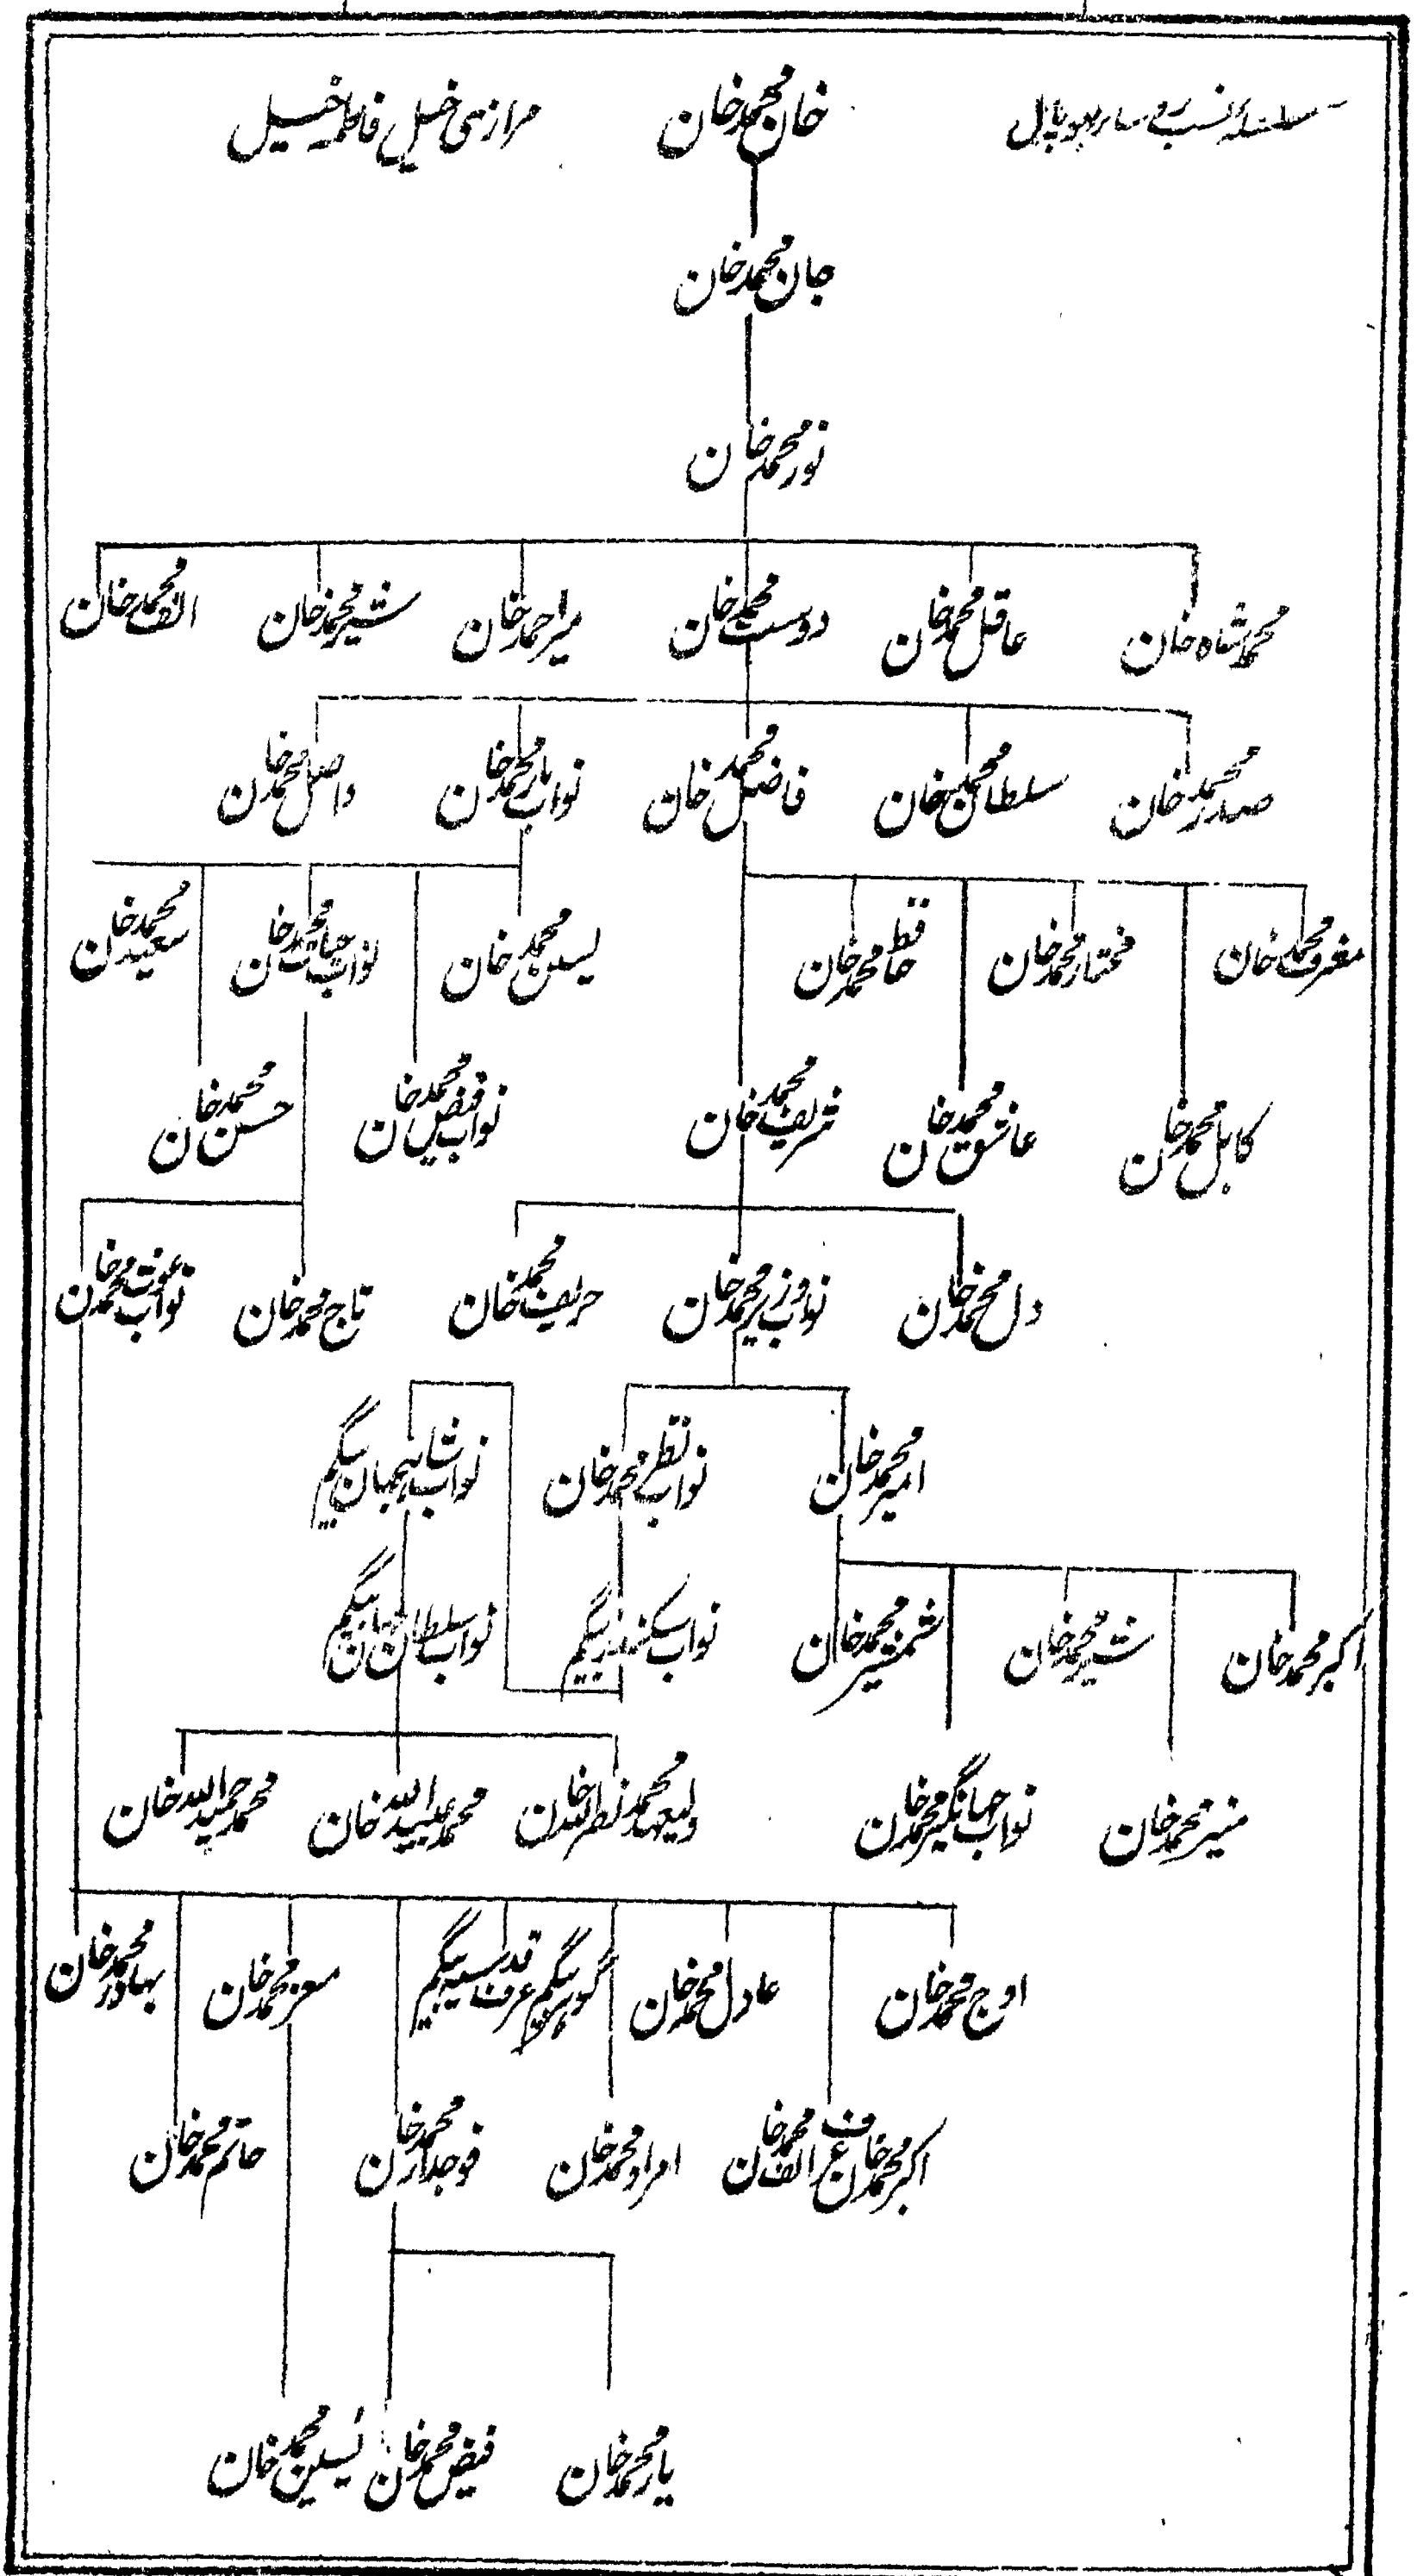 سلسلہ نسب رؤسائے بھوپال
خان محمد خان
مرازی خیل فاطمہ خیل
جان محمد خان
نور محمد خان
محمد شاہ خان
عاقل محمد خان
دوست محمد خان
میر احمد خان
شیر محمد خان
الف محمد خان
صدر محمد خان
سلطان محمد خان
فاضل محمد خان
نواب یار محمد خان
واصل محمد خان
معرف محمد خان
مختار محمد خان
حافظ محمد خان
یسین محمد خان
نواب حیات محمد خان
سعید محمد خان
کابل محمد خان
عاشق محمد خان
شریف محمد خان
نواب فیض محمد خان
حسن محمد خان
دل محمد خان
نواب وزیر محمد خان
حریف محمد خان
تاج محمد خان
نواب غوث محمد خان
امیر محمد خان
نواب نظر محمد خان
نواب شاہجہان بیگم
اکبر محمد خان
شیر محمد خان
شمشیر محمد خان
نواب سکندر بیگم
نواب سلطان جہان بیگم
منیر محمد خان
نواب جہانگیر محمد خان
ولیعہد محمد نصر اللہ خان
محمد عبید اللہ خان
محمد حمید اللہ خان
اوج محمد خان
عادل محمد خان
گوہر بیگم عرف قدسیہ بیگم
معز محمد خان
بہادر محمد خان
اکبر محمد خان عرف الف محمد خان
امراو محمد خان
فوجدار محمد خان
حاتم محمد خان
یار محمد خان
فیض محمد خان
یسین محمد خان